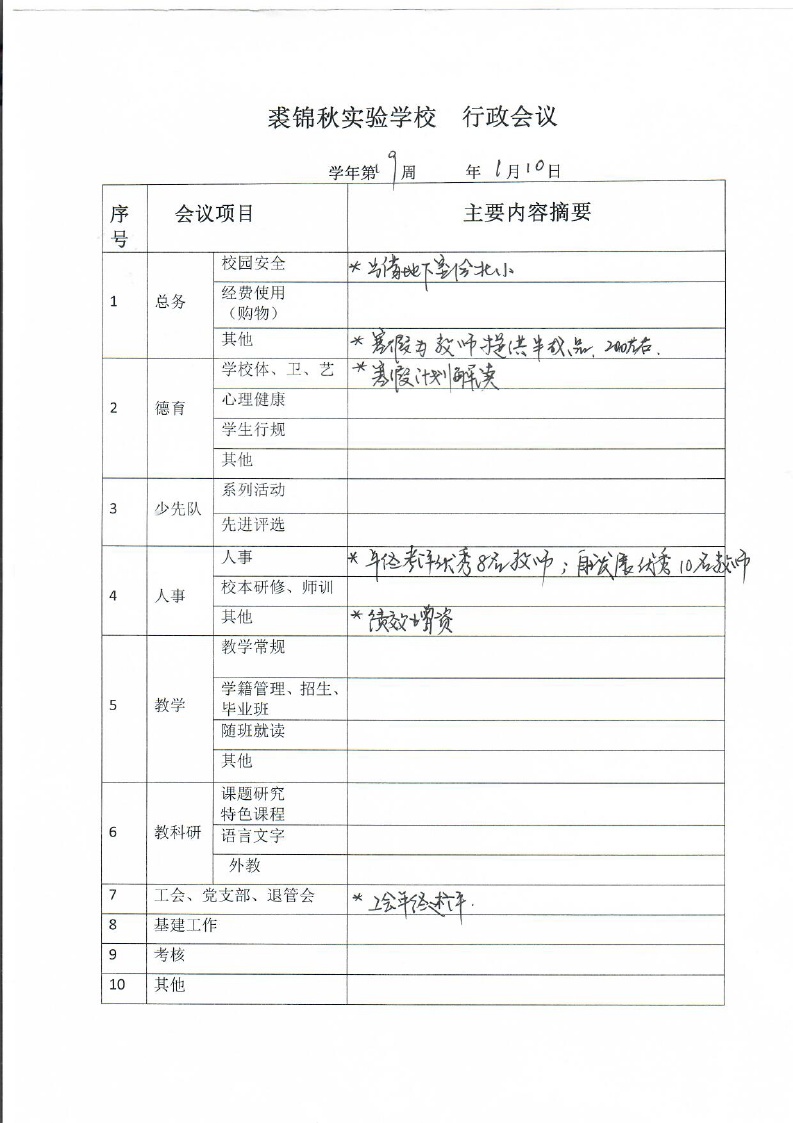 裘锦秋实验学校 行政会议
学年第19周 年 1月10日
序号 会议项目 主要内容摘要
1 总务 校园安全 * 出借地下室给北小
经费使用
（购物）
其他 * 寒假为教师提供半成品，200左右.
2 德育 学校体、卫、艺 * 寒假计划解读
心理健康
学生行规
其他
3 少先队 系列活动
先进评选
4 人事 人事 * 年终考评优秀8名教师；自发展优秀10名教师
校本研修、师训
其他 * 绩效增资
5 教学 教学常规
学籍管理、招生、
毕业班
随班就读
其他
6 教科研 课题研究
特色课程
语言文字
外教
7 工会、党支部、退管会 * 工会年终
8 基建工作
9 考核
10 其他